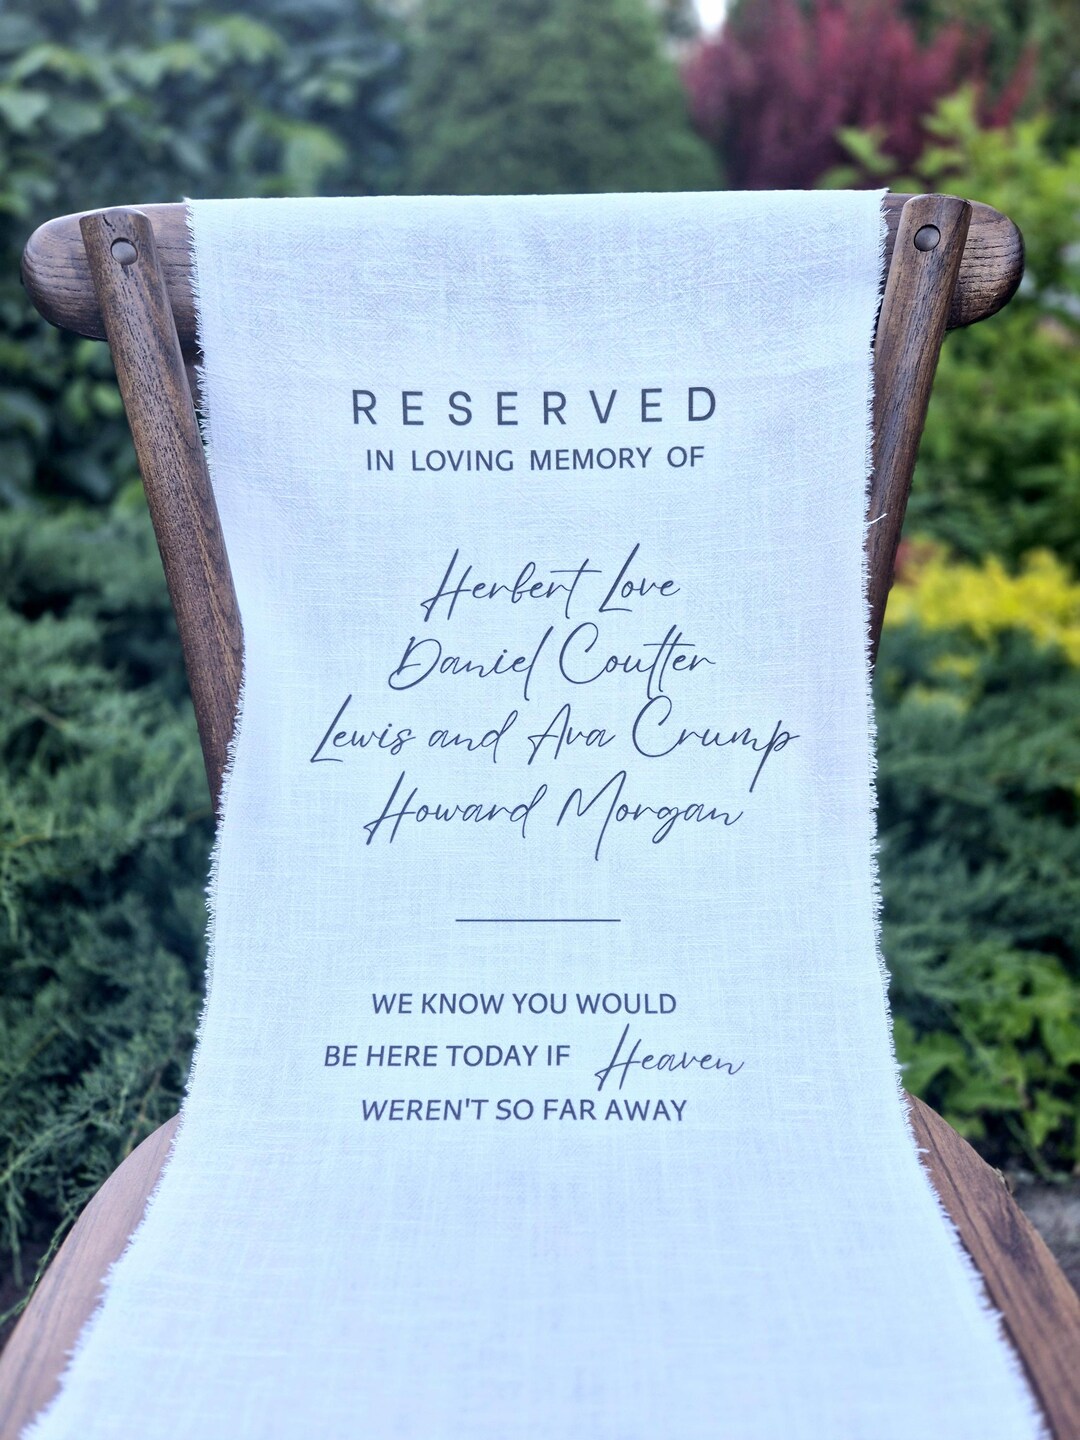 RESERVED
IN LOVING MEMORY OF
Herbert Love
Daniel Coutter
Lewis and Ava Crump
Howard Morgan
WE KNOW YOU WOULD
BE HERE TODAY IF Heaven
WEREN'T SO FAR AWAY